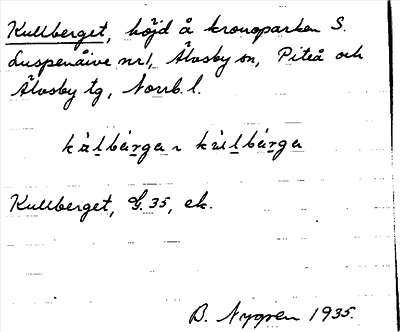 Kullberget, höjd å kronoparken S.
Luspenåive nr 1, Älvsby sn, Piteå och
Älvsby tg, Norrb. l.
Kullberget, G. 35, ek.
B. Nygren 1935.